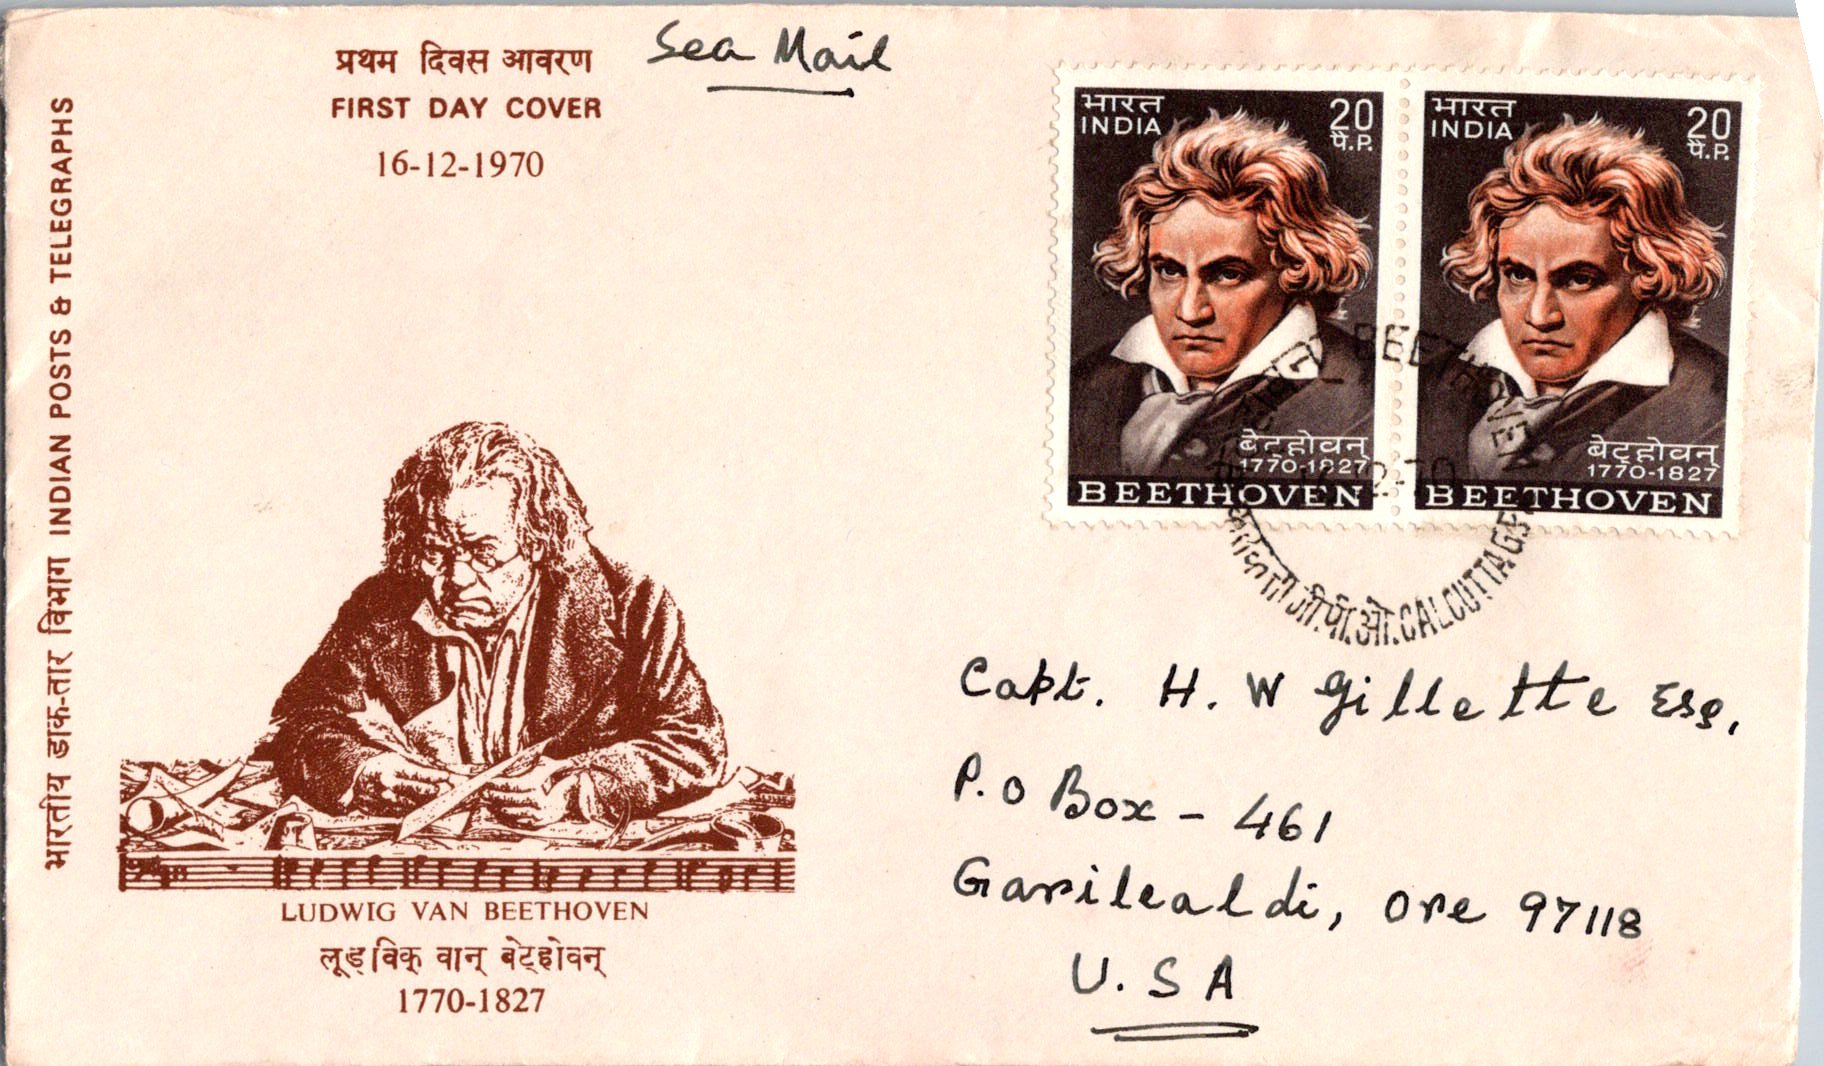 प्रथम दिवस आवरण
FIRST DAY COVER
16-12-1970
Sea Mail
भारतीय डाक-तार विभाग INDIAN POSTS & TELEGRAPHS
भारत
INDIA
20
पै.P.
बेट्होवन्
1770-1827
BEETHOVEN
भारत
INDIA
20
पै.P.
बेट्होवन्
1770-1827
BEETHOVEN
BEETHOVEN
जी.पी.ओ. CALCUTTA G.P.O.
Capt. H. W Gillette Esq.
P.o Box - 461
Garilealdi, Ore 97118
U. S A
LUDWIG VAN BEETHOVEN
लूड्विक् वान् बेट्होवन्
1770-1827